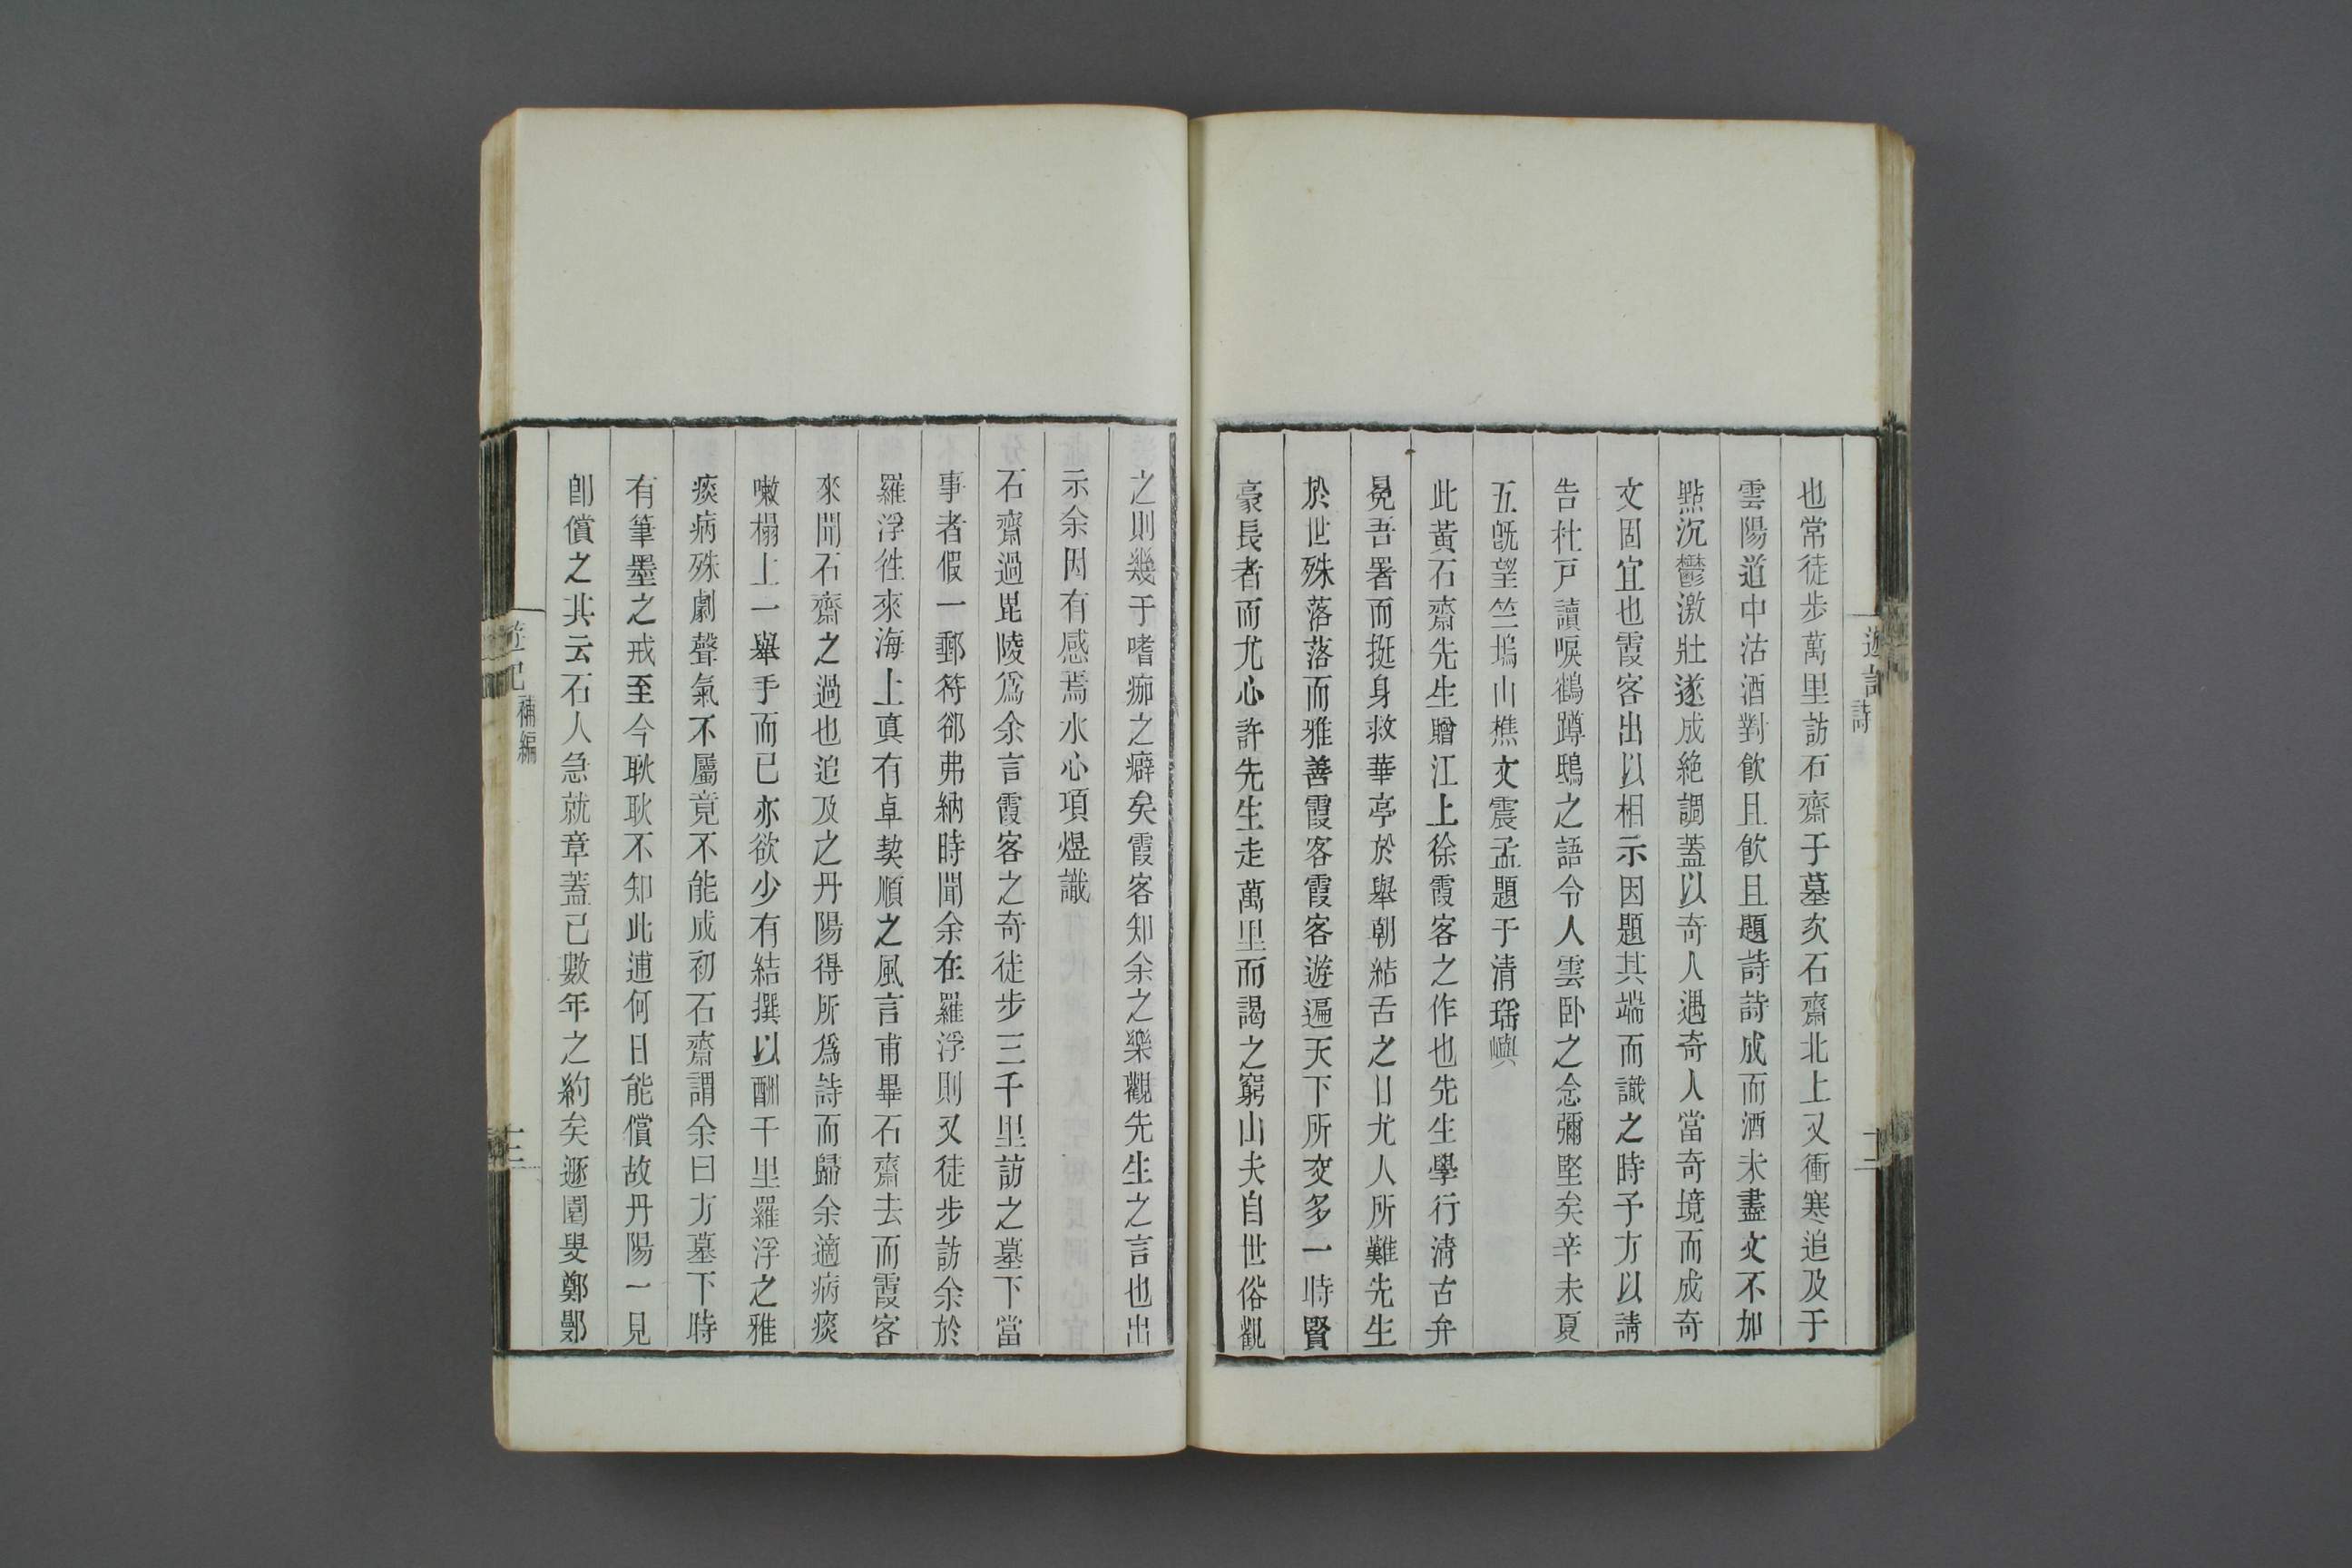 遊記 詩 十二
也常徒步萬里訪石齋于墓次石齋北上又衝寒追及于
雲陽道中沽酒對飲且飲且題詩詩成而酒未盡文不加
點沉鬱激壯遂成絶調蓋以奇人遇奇人當奇境而成奇
文固宜也霞客出以相示因題其端而識之時予方以請
告杜戸讀唳鶴蹲鴟之語令人雲卧之念彌堅矣辛未夏
五旣望竺塢山樵文震孟題于清瑶嶼
此黃石齋先生贈江上徐霞客之作也先生學行淸古弁
冕吾署而挺身救華亭於舉朝結舌之日尤人所難先生
於世殊落落而雅善霞客霞客遊遍天下所交多一時賢
豪長者而尤心許先生走萬里而謁之窮山夫自世俗觀
之則幾于嗜痂之癖矣霞客知余之樂觀先生之言也出
示余因有感焉水心項煜識
石齋過毘陵爲余言霞客之奇徒步三千里訪之墓下當
事者假一郵符郤弗納時聞余在羅浮則又徒步訪余於
羅浮徃來海上眞有卓契順之風言甫畢石齋去而霞客
來聞石齋之過也追及之丹陽得所爲詩而歸余適病痰
嗽榻上一舉手而已亦欲少有結撰以酬千里羅浮之雅
痰病殊劇聲氣不屬竟不能成初石齋謂余曰方墓下時
有筆墨之戒至今耿耿不知此逋何日能償故丹陽一見
卽償之其云石人急就章蓋已數年之約矣遯園叟鄭鄤
遊記 補編 十二